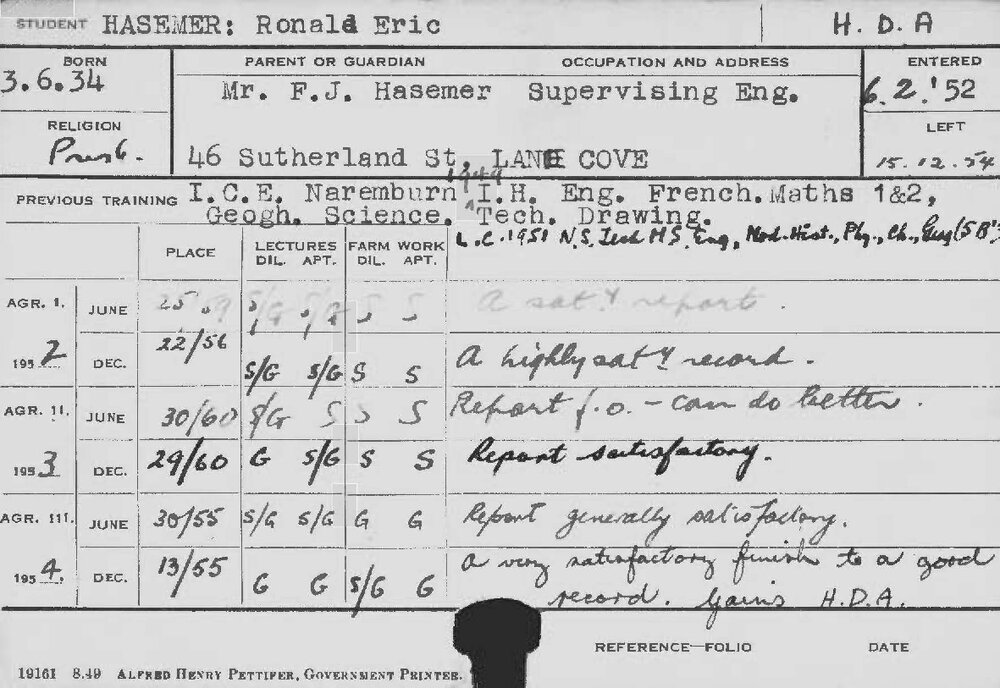 STUDENT HASEMER: Ronald Eric H. D. A
BORN PARENT OR GUARDIAN OCCUPATION AND ADDRESS ENTERED
3.6.34 Mr. F.J. Hasemer Supervising Eng. 6.2.'52
RELIGION LEFT
Presb. 46 Sutherland St, LANE COVE 15.12.54
PREVIOUS TRAINING I.C.E. Naremburn 1949 I.H. Eng. French. Maths 1&2,
Geogh. Science. Tech. Drawing.
L.C. 1951 N.S. Tech H.S. Eng, Mod. Hist., Phy., Ch., Geog (5 B's)
PLACE LECTURES FARM WORK
DIL. APT. DIL. APT.
AGR. I. JUNE S/G S/G S S A sat.y report.
1952 DEC. 22/56 S/G S/G S S A highly sat y record.
AGR. II. JUNE 30/60 S/G S S S Report f.o. - can do better.
1953 DEC. 29/60 G S/G S S Report satisfactory.
AGR. III. JUNE 30/55 S/G S/G G G Report generally satisfactory.
1954. DEC. 13/55 G G S/G G A very satisfactory finish to a good
record. Gains H.D.A.
REFERENCE-FOLIO DATE
19161 8.49 ALFRED HENRY PETTIFER, GOVERNMENT PRINTER.